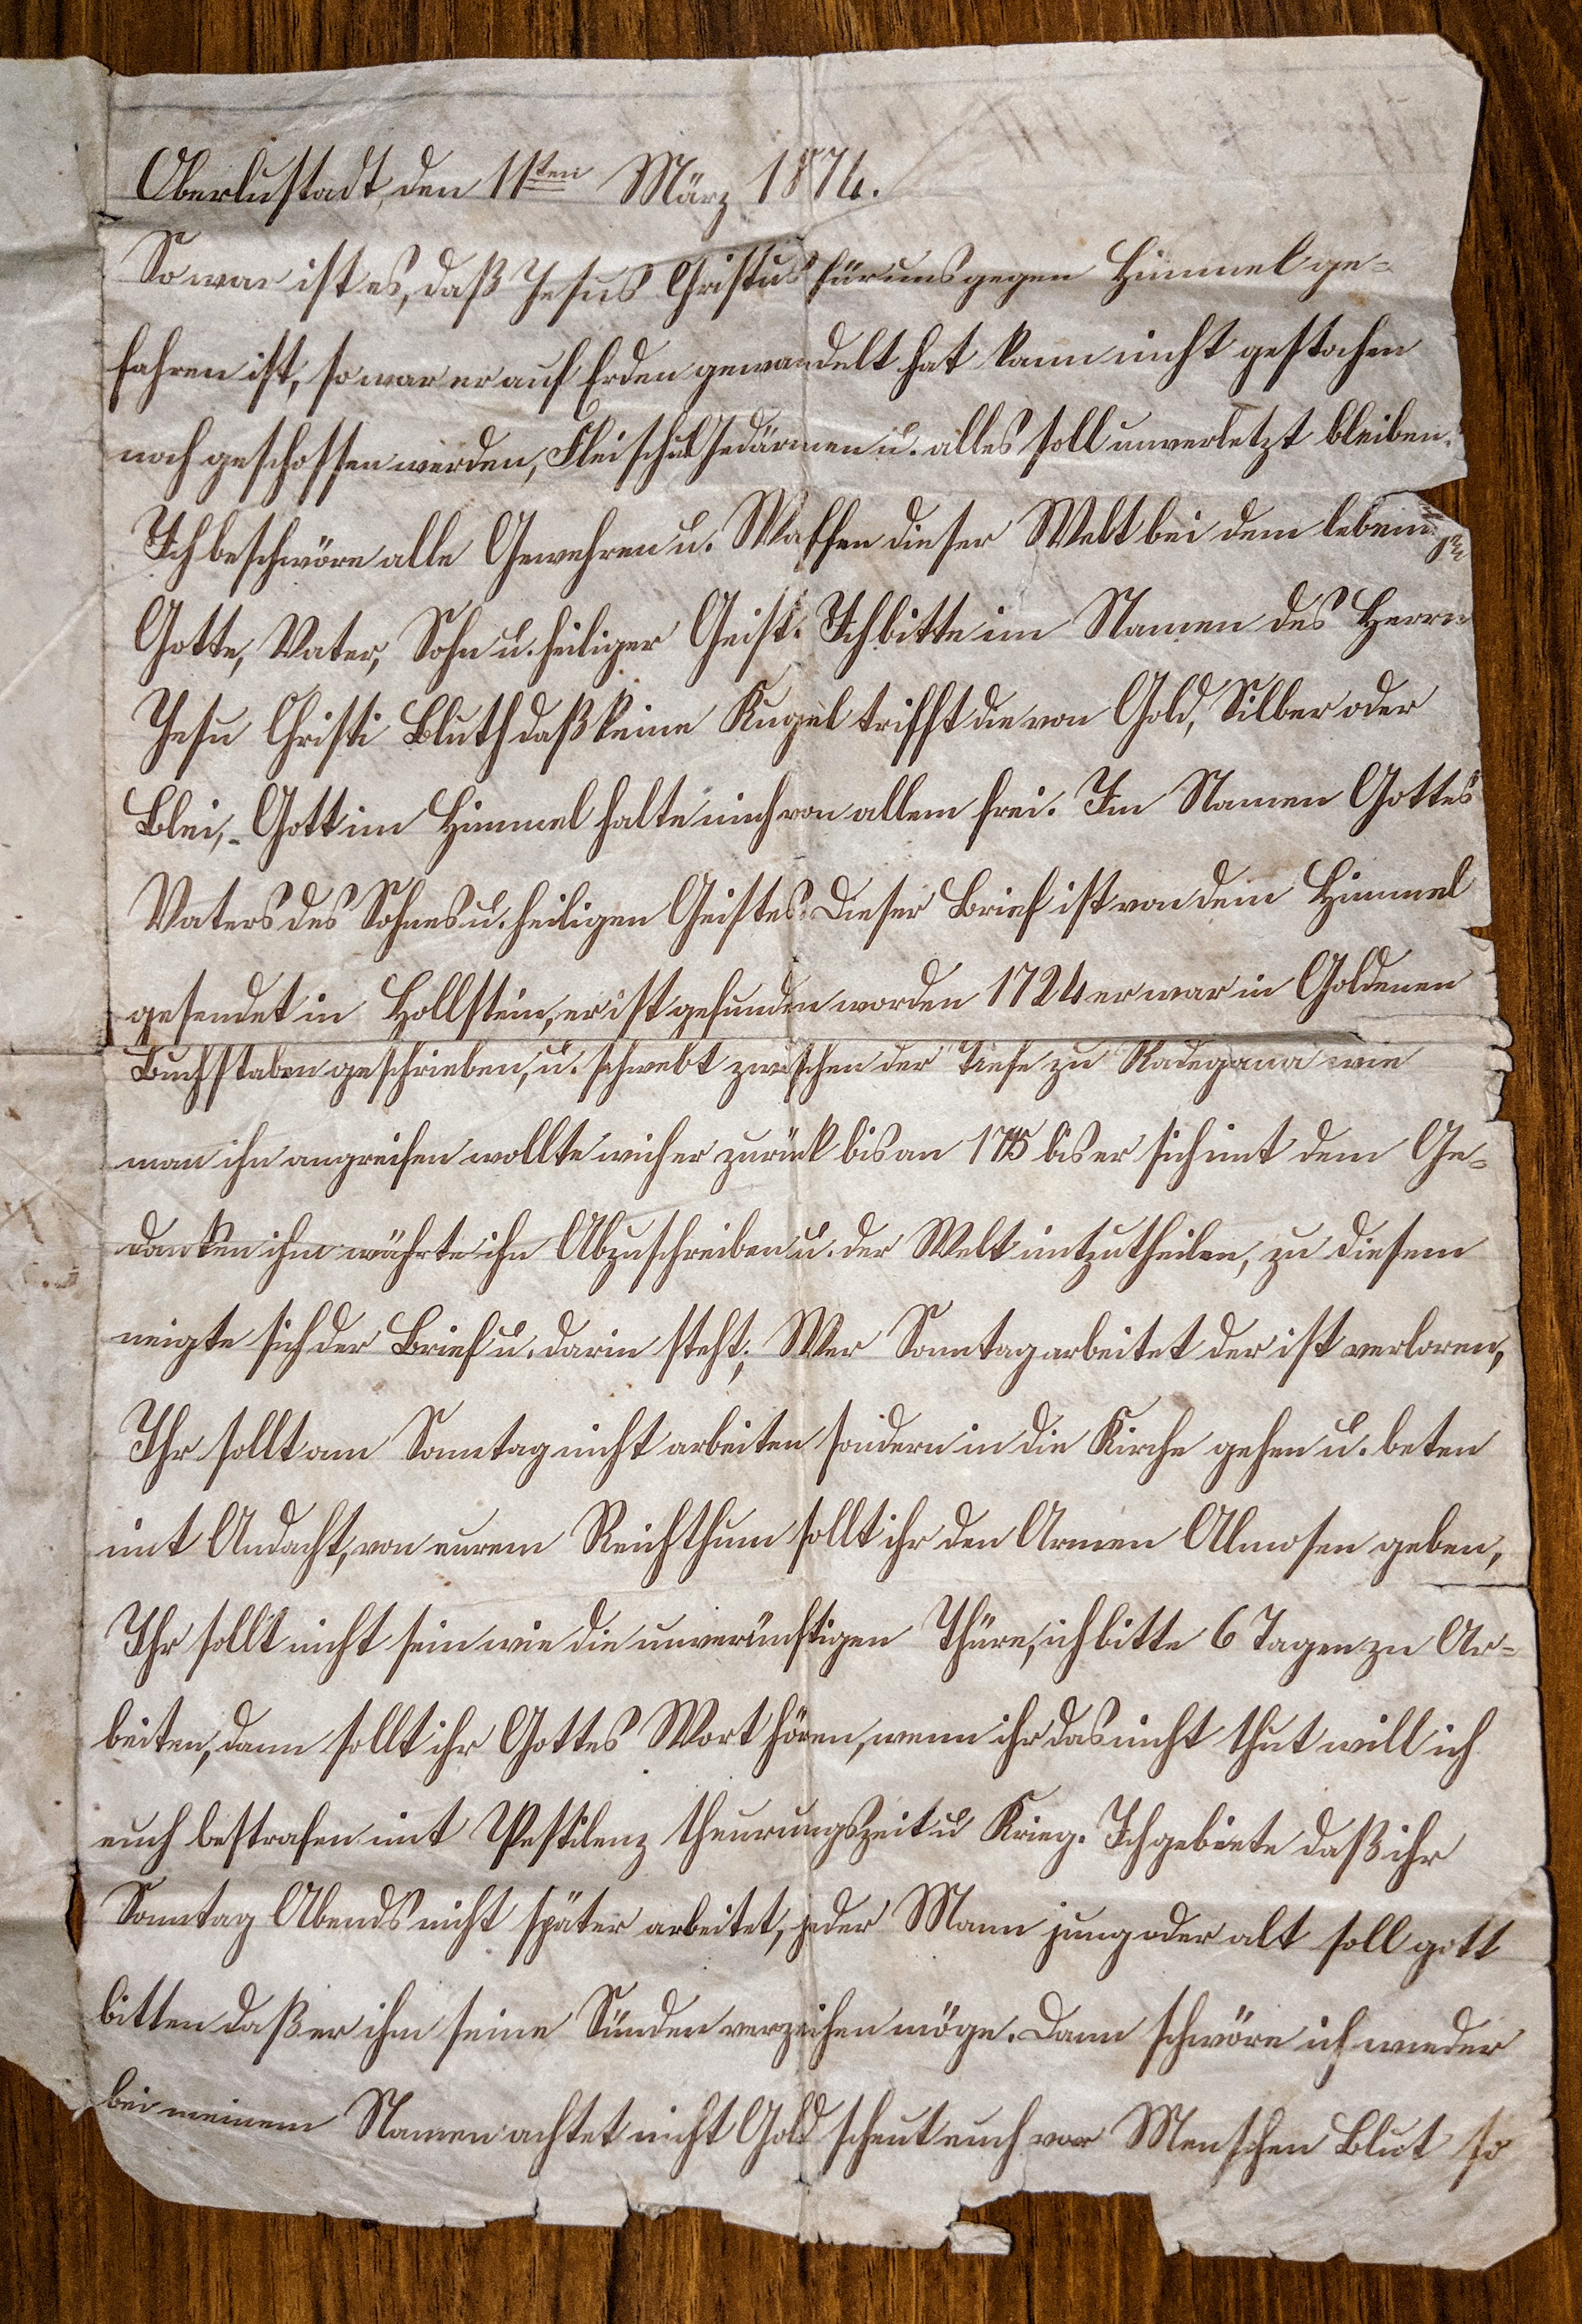 Oberlustadt, den 11ten März 1874.
So war ist es, daß Jesus Christus für uns gegen Himmel ge-
fahren ist, so war er auf Erden gewandelt hat kann nicht gestochen
noch geschossen werden, Fleisch u Gedärmen u. alles soll unverletzt bleiben.
Ich beschwöre alle Gewehren u. Waffen dieser Welt bei dem
Gotte, Vater, Sohn u. heiliger Geist. Ich bitte im Namen des Herrn
Jesu Christi Bluth daß keine Kugel trifft die von Gold, Silber oder
Blei,- Gott im Himmel halte mich von allem frei. Im Namen Gottes
Vaters des Sohnes u. heiligen Geistes. Dieser Brief ist von dem Himmel
gesendet in Hollstein, er ist gefunden worden 1724 er war in Goldenen
Buchstaben geschrieben, u. schwebt zwischen der Tiefe zu wie
man ihn angreifen wollte wich er zurück bis an bis er sich mit dem Ge-
danken ihm währte ihn Abzuschreiben u. der Welt mitzutheilen, zu diesem
neigte sich der Brief u. darin steht; Wer Sonntag arbeitet der ist verloren,
Ihr sollt am Sonntag nicht arbeiten sondern in die Kirche gehen u. beten
mit Andacht, von eurem Reichthum sollt ihr den Armen Almosen geben,
Ihr sollt nicht sein wie die unverünftigen Thüre, ich bitte 6 Tagen zu Ar-
beiten, dann sollt ihr Gottes Wort hören, wenn ihr das nicht thut will ich
euch bestrafen mit Pestilenz theurungszeit u Krieg. Ich gebiete daß ihr
Sonntag Abends nicht später arbeitet, jeder Mann jung oder alt soll gott
bitten daß er ihm seine Sünden verzeihen möge. Dann schwöre ich wieder
bei meinem Namen achtet nicht Gold scheut euch vor Menschen Blut so